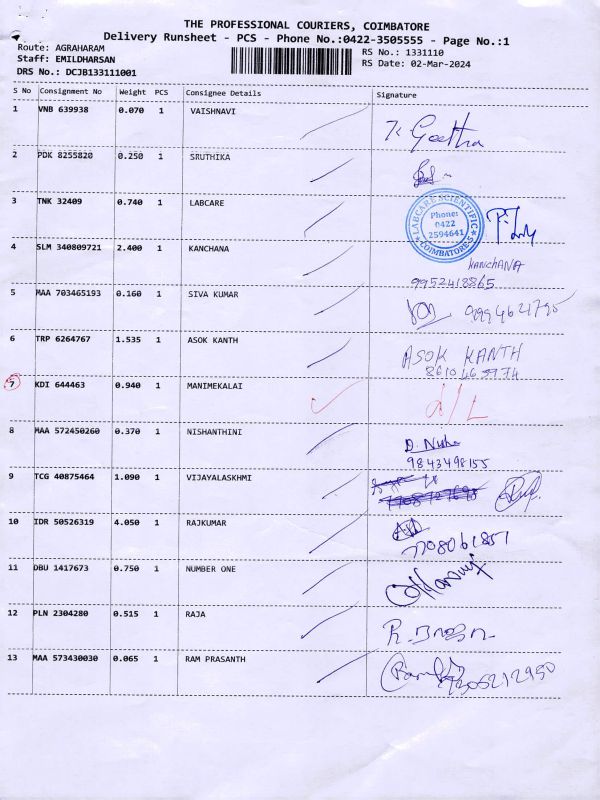 THE PROFESSIONAL COURIERS, COIMBATORE
Delivery Runsheet - PCS - Phone No.:0422-3505555 - Page No.:1
Route: AGRAHARAM
Staff: EMILDHARSAN
DRS No.: DCJB133111001
RS No.: 1331110
RS Date: 02-Mar-2024
S No Consignment No Weight PCS Consignee Details Signature
1 VNB 639938 0.070 1 VAISHNAVI K Geetha
2 PDK 8255820 0.250 1 SRUTHIKA
3 TNK 32409 0.740 1 LABCARE
LABCARE SCIENTIFIC
Phone:
0422
2594641
COIMBATORE-5
4 SLM 340809721 2.400 1 KANCHANA KANCHANA
9952418865
5 MAA 703465193 0.160 1 SIVA KUMAR 9994621795
6 TRP 6264767 1.535 1 ASOK KANTH ASOK KANTH
7 KDI 644463 0.940 1 MANIMEKALAI D/L
8 MAA 572450260 0.370 1 NISHANTHINI D. Nisha
9843498155
9 TCG 40875464 1.090 1 VIJAYALASKHMI
10 IDR 50526319 4.050 1 RAJKUMAR
7708061851
11 DBU 1417673 0.750 1 NUMBER ONE
12 PLN 2304280 0.515 1 RAJA
13 MAA 573430030 0.065 1 RAM PRASANTH